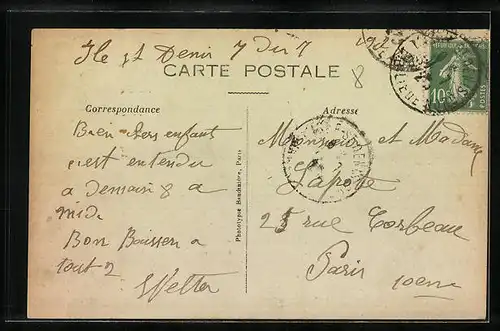 Ile St Denis 7 Du 7
CARTE POSTALE
8
Correspondance
Adresse
Bien chers enfant
c'est entendu
a demain 8 a
midi
Bon Baisser a
tout 2
Welter
Phototype Bauduinière, Paris
Monsieur et Madame
Laporte
25 rue Corbeau
Paris
10eme
RÉPUBLIQUE
10c
POSTES